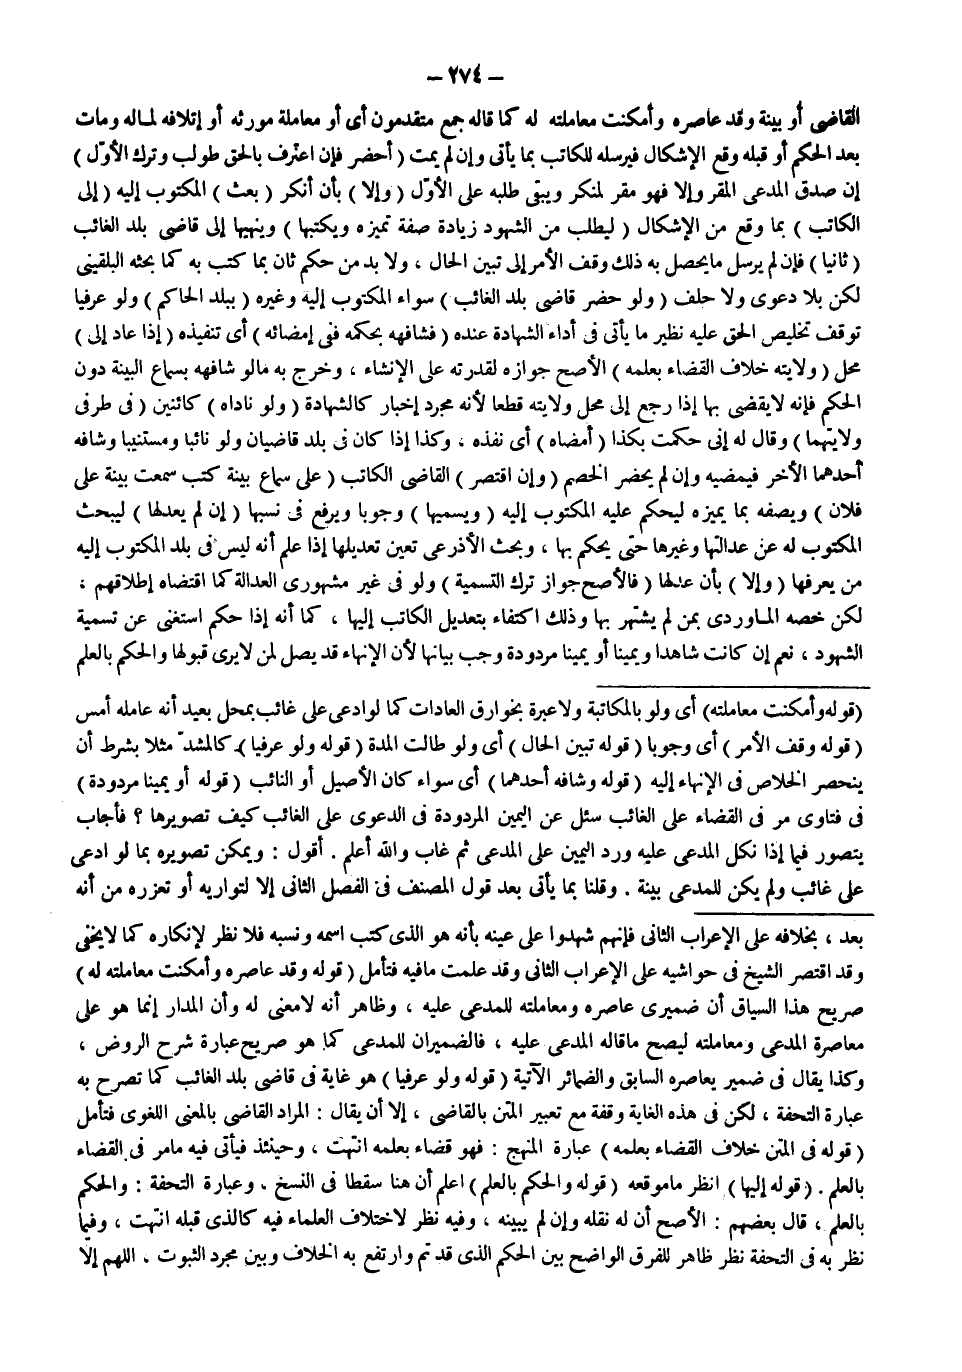 – ٢٧٤ –
القاضى أو بينة وقد عاصره وأمكنت معاملته له كما قاله جمع متقدمون أى أو معاملة مورثه أو إتلافه لماله ومات
بعد الحكم أو قبله وقع الإشكال فيرسله للكاتب بما يأتى وإن لم يمت ( أحضر فإن اعترف بالحق طولب وترك الأوّل )
إن صدق المدعى المقر وإلا فهو مقر لمنكر ويبقى طلبه على الأوّل ( وإلا ) بأن أنكر ( بعث ) المكتوب إليه ( إلى
الكاتب ) بما وقع من الإشكال ( ليطلب من الشهود زيادة صفة تميزه ويكتبها ) وينهيها إلى قاضى بلد الغائب
( ثانيا ) فإن لم يرسل مايحصل به ذلك وقف الأمر إلى تبين الحال ، ولا بد من حكم ثان بما كتب به كما بحثه البلقينى
لكن بلا دعوى ولا حلف ( ولو حضر قاضى بلد الغائب ) سواء المكتوب إليه وغيره ( ببلد الحاكم ) ولو عرفيا
توقف تخليص الحق عليه نظير ما يأتى فى أداء الشهادة عنده ( فشافهه بحكمه ففى إمضائه ) أى تنفيذه ( إذا عاد إلى )
محل ( ولايته خلاف القضاء بعلمه ) الأصح جوازه لقدرته على الإنشاء ، وخرج به مالو شافهه بسماع البينة دون
الحكم فإنه لايقضى بها إذا رجع إلى محل ولايته قطعا لأنه مجرد إخبار كالشهادة ( ولو ناداه ) كائنين ( فى طرفى
ولايتهما ) وقال له إنى حكمت بكذا ( أمضاه ) أى نفذه ، وكذا إذا كان فى بلد قاضيان ولو نائبا ومستنيبا وشافه
أحدهما الأخر فيمضيه وإن لم يحضر الخصم ( وإن اقتصر ) القاضى الكاتب ( على سماع بينة كتب سمعت بينة على
فلان ) ويصفه بما يميزه ليحكم عليه المكتوب إليه ( ويسميها ) وجوبا ويرفع فى نسبها ( إن لم يعدلها ) ليبحث
المكتوب له عن عدالتها وغيرها حتى يحكم بها ، وبحث الأذرعى تعين تعديلها إذا علم أنه ليس فى بلد المكتوب إليه
من يعرفها ( وإلا ) بأن عدلها ( فالأصح جواز ترك التسمية ) ولو فى غير مشهورى العدالة كما اقتضاه إطلاقهم ،
لكن خصه الماوردى بمن لم يشتهر بها وذلك اكتفاء بتعديل الكاتب إليها ، كما أنه إذا حكم استغنى عن تسمية
الشهود ، نعم إن كانت شاهدا ويمينا أو يمينا مردودة وجب بيانها لأن الإنهاء قد يصل لمن لايرى قبولها والحكم بالعلم
(قوله وأمكنت معاملته) أى ولو بالمكاتبة ولا عبرة بخوارق العادات كما لو ادعى على غائب بمحل بعيد أنه عامله أمس
( قوله وقف الأمر ) أى وجوبا ( قوله تبين الحال ) أى ولو طالت المدة ( قوله ولو عرفيا ) كالمشدّ مثلا بشرط أن
ينحصر الخلاص فى الإنهاء إليه ( قوله وشافه أحدهما ) أى سواء كان الأصيل أو النائب ( قوله أو يمينا مردودة )
فى فتاوى مر فى القضاء على الغائب سئل عن اليمين المردودة فى الدعوى على الغائب كيف تصويرها ؟ فأجاب
يتصور فيما إذا نكل المدعى عليه ورد اليمين على المدعى ثم غاب والله أعلم . أقول : ويمكن تصويره بما لو ادعى
على غائب ولم يكن للمدعى بينة . وقلنا بما يأتى بعد قول المصنف فى الفصل الثانى إلا لتواريه أو تعزره من أنه
بعد ، بخلافه على الإعراب الثانى فإنهم شهدوا على عينه بأنه هو الذى كتب اسمه ونسبه فلا نظر لإنكاره كما لايخفى
وقد اقتصر الشيخ فى حواشيه على الإعراب الثانى وقد علمت مافيه فتأمل ( قوله وقد عاصره وأمكنت معاملته له )
صريح هذا السياق أن ضميرى عاصره ومعاملته للمدعى عليه ، وظاهر أنه لامعنى له وأن المدار إنما هو على
معاصرة المدعى ومعاملته ليصح ماقاله المدعى عليه ، فالضميران للمدعى كما هو صريح عبارة شرح الروض ،
وكذا يقال فى ضمير يعاصره السابق والضمائر الآتية ( قوله ولو عرفيا ) هو غاية فى قاضى بلد الغائب كما تصرح به
عبارة التحفة ، لكن فى هذه الغاية وقفة مع تعبير المتن بالقاضى ، إلا أن يقال : المراد القاضى بالمعنى اللغوى فتأمل
( قوله فى المتن خلاف القضاء بعلمه ) عبارة المنهج : فهو قضاء بعلمه انتهت ، وحينئذ فيأتى فيه مامر فى القضاء
بالعلم . ( قوله إليها ) انظر ماموقعه ( قوله والحكم بالعلم ) اعلم أن هنا سقطا فى النسخ . وعبارة التحفة : والحكم
بالعلم ، قال بعضهم : الأصح أن له نقله وإن لم يبينه ، وفيه نظر لاختلاف العلماء فيه كالذى قبله انتهت ، وفيما
نظر به فى التحفة نظر ظاهر للفرق الواضح بين الحكم الذى قد تم وارتفع به الخلاف وبين مجرد الثبوت . اللهم إلا